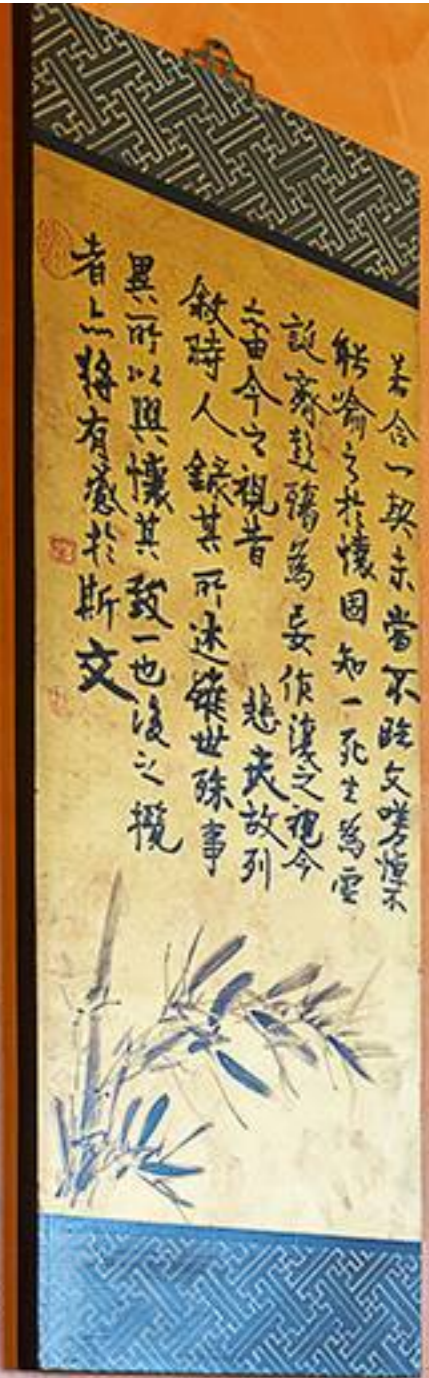 若合一契未嘗不臨文嗟悼不
能喻之於懷固知一死生為虛
誕齊彭殤為妄作後之視今
亦由今之視昔 悲夫故列
敘時人錄其所述雖世殊事
異所以興懷其致一也後之攬
者亦將有感於斯文